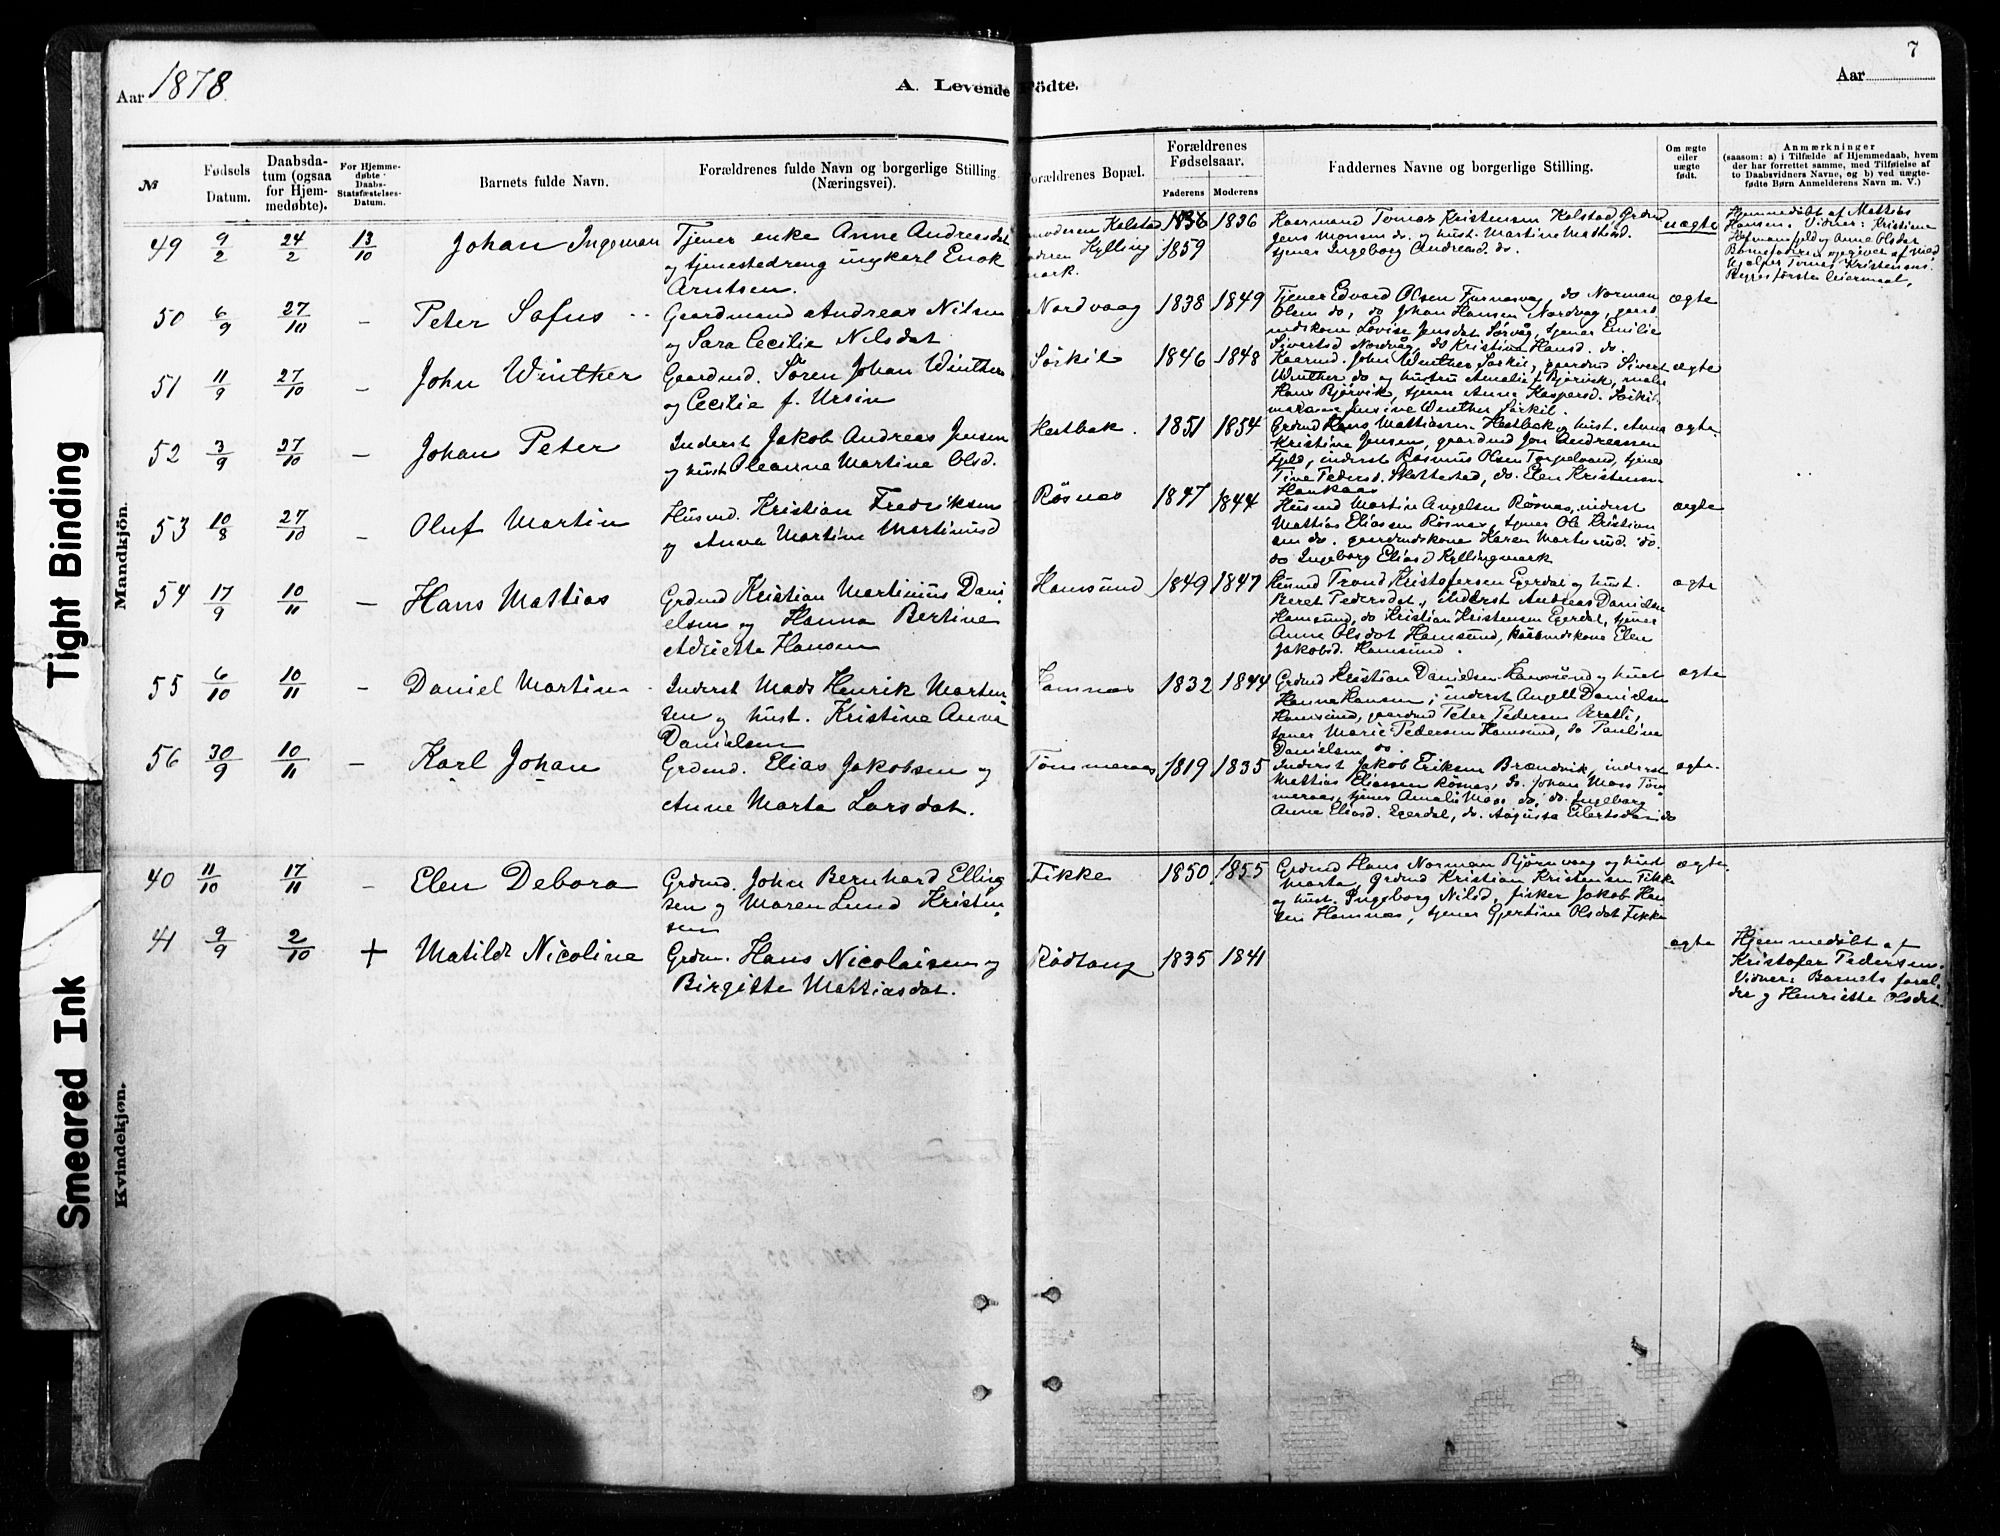 Tight Binding
Smeared Ink
Aar 1878.
A. Levende Födte.
7
Aar
№
Fødsels Datum.
Daabsdatum (ogsaa for Hjemmedøbte).
For Hjemmedøbte Daabs-Statsfæstelses-Datum.
Barnets fulde Navn.
Forældrenes fulde Navn og borgerlige Stilling (Næringsvei).
Forældrenes Bopæl.
Forældrenes Fødselsaar.
Faderens Moderens
Faddernes Navne og borgerlige Stilling.
Om ægte eller uægte født.
Anmærkninger
(saasom: a) i Tilfælde af Hjemmedaab, hvem
der har forrettet samme, med Tilføielse af
to Daabsvidners Navne, og b) ved uægte-
fødte Børn Anmelderens Navn m. V.)
Mandkjön.
49 9/2 24/2 13/10 Johan Ingeman
Tjener enke Anne Andreasdat
og tjenestedreng ungkarl Enok
Arntsen.
moderen Kelstad
Kylling
mark.
1836 1836
1859
Kaarmand Tomas Kristensen Kelstad, Grdmd
Jens Monsen do. og hust. Martine Matiasd.
tjener Ingeborg Andreasd. do.
uægte
Hjemmedøbt af Mattias
Hansen. Vidner: Kristiane
og Anne Olsdat
Barnefaderen opgivet af
Tomas Kristensen.
Begges første leiermaal.
50 6/9 27/10 – Peter Sofus
Gaardmand Andreas Nilsen
og Sara Cecilie Nilsdat
Nordvaag 1838 1849
Tjener Edvard Olsen Furnesvag, do Norman
Olsen do, do Johan Hansen Nordvag, gaard
mdskone Lovise Jensdat Sørvåg, tjener Emilie
Sivertsd Nordvåg, do Kristine Hansd. do.
ægte
51 11/9 27/10 – John Winther
Gaardmd. Søren Johan Winther
og Cecilie f. Ursin
Sørkil 1846 1848
Kaarmd. John Winther Sørkil, gaardmd Sivert
Winther do og hustru Amalie f Bjørvik,
Hans Bjørvik, tjener Anne Kaspersd. Sørkil
Jensine Winther Sørkil.
ægte
52 3/9 27/10 – Johan Peter
Inderst Jakob Andreas Jensen
og hust Oleanna Martine Olsd.
Hestbak. 1851 1854
Grdmd Hans Mattiassen Hestbak og hust. Anna
Kristine Jensen, gaardmd Jon Andreassen
Fjeld, inderst Rasmus Olsen Torpelvand, tjener
Tine Pedersd. Slettestad, do. Elen Kristensen
Haukaas
ægte.
53 10/8 27/10 – Oluf Martin
Husmd. Kristian Fredriksen
og Anna Martine Martinusd
Røsnes 1847 1844
Husmd Martin Angelsen Røsnes, inderst
Mattias Eliassen Røsnes, tjener Ole Kristian
sen do. gaardmdskone Karen Martinusd. do.
do Ingeborg Eliasd Kyllingmark
ægte
54 17/9 10/11 – Hans Mattias
Grdmd Kristian Martinius Dani
elsen og Hanna Bertine
Adriette Hansen
Hamsund 1849 1847
Husmd Trond Kristofersen Egerdal og hust.
Beret Pedersdat, inderst Andreas Danielsen
Hamsund, do Kristian Kristensen Egerdal, tjener
Anne Olsdat Hamsund, kaarmdskone Elen
Jakobsd. Hamsund.
ægte
55 6/10 10/11 – Daniel Martin
Inderst Mads Henrik Marten
sen og hust. Kristine Anna
Danielsen
Hamnes 1832 1844
Grdmd Kristian Danielsen Hamsund og hust
Hanna Hansen, inderst Angell Danielsen
Hamsund, gaardmd Peter Pedersen Bratli,
tjener Marie Pedersen Hamsund, do Pauline
Danielsen do.
ægte
56 30/9 10/11 – Karl Johan
Grdmd. Elias Jakobsen og
Anne Marta Larsdat.
Tømmeraas 1819 1835
Inderst Jakob Eriksen Brændvik, inderst
Mattias Eliassen Røsnes, do. Johan Moss Tøm
meraas, tjener Amalie Moss do, do. Ingeborg
Anne Eliasd. Egerdal, do. Augusta Eilertsdan do
ægte.
Kvindekjön.
40 11/10 17/11 – Elen Debora
Grdmd. John Bernhard Elling
sen og Maren Lund Kristen
sen
Fikke 1850 1855
Grdmd Hans Norman Bjørnvaag og hust
Marta, Grdmd Kristian Kristensen Fikke
og hust. Ingeborg Nilsd, fisker Jakob Han
sen Hamnes, tjener Gjertine Olsdat Fikke
ægte.
41 9/9 2/10 + Matilde Nicoline
Grdm. Hans Nicolaisen og
Birgitte Mattiasdat.
Rødtang 1835 1841
ægte
Hjemmedøbt af
Kristofer Pedersen.
Vidner: Barnets foræl
dre og Henriette Olsdat.